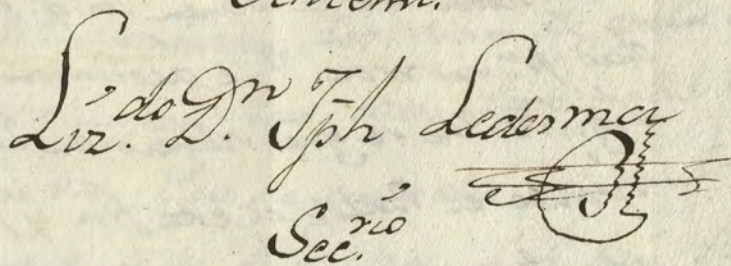 Liz.do D.n Jph Ledesma
Sec.rio